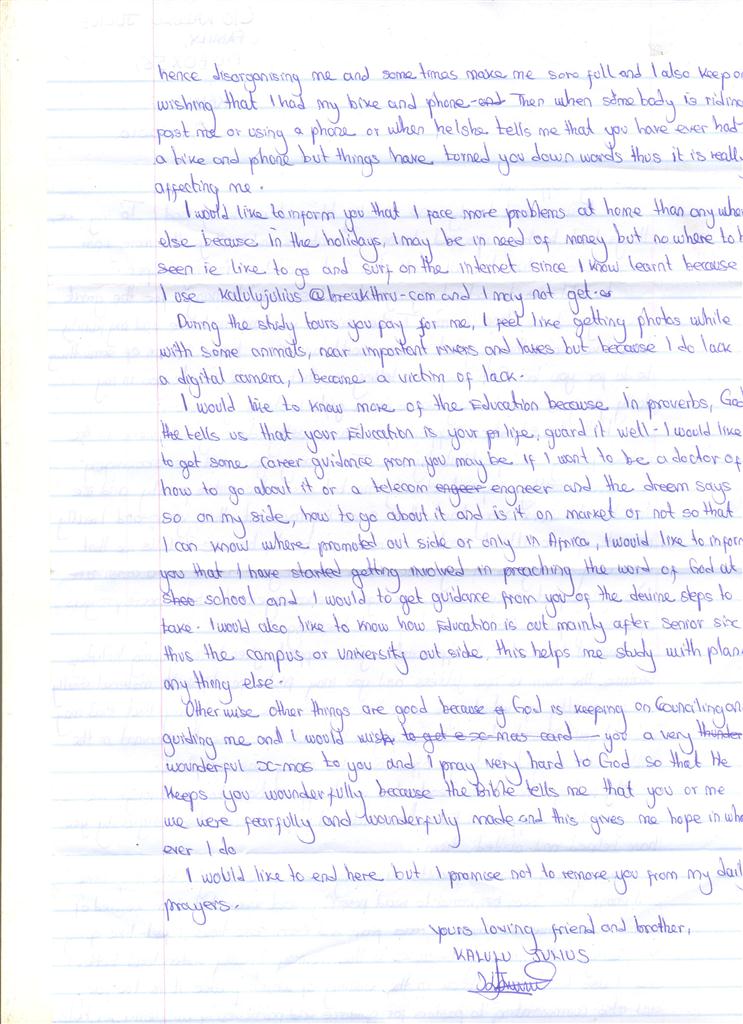 hence disorganising me and some times make me soro full and I also keep
wishing that I had my bike and phone and Then when some body is
past me or using a phone or when he/she tells me that you have ever had
a bike and phone but things have turned you down words thus it is
affecting me.
I would like to inform you that I face more problems at home than any
else because in the holidays, I may be in need of money but no where to
seen ie like to go and surf on the internet since I know learnt because
I use kalulujulius@breakthru-com and I may not get.
During the study tours you pay for me, I feel like getting photos while
with some animals, near important rivers and lakes but because I do lack
a digital camera, I became a victim of lack.
I would like to know more of the Education because in proverbs, God
the tells us that your Education is your life, guard it well - I would like
to get some career guidance from you may be if I want to be a doctor of
how to go about it or a telecom engneer and the dreem says
so on my side, how to go about it and is it on market or not so that
I can know where promoted out side or only in Africa, I would like to
you that I have started getting involved in preaching the word of God at
school and I would to get guidance from you of the devine steps to
take. I would also like to know how Education is out mainly after senior
thus the campus or university out side, this helps me study with plan
any thing else.
Other wise other things are good because God is keeping on Counciling
guiding me and I would wish to get e x-mas card you a very thunder
wounderful x-mas to you and I pray very hard to God so that He
keeps you wounderfully because the Bible tells me that you or me
we were fearfully and wounderfuly made and this gives me hope in
ever I do
I would like to end here but I promise not to remove you from my
prayers.
yours loving friend and brother,
KALULU JULIUS